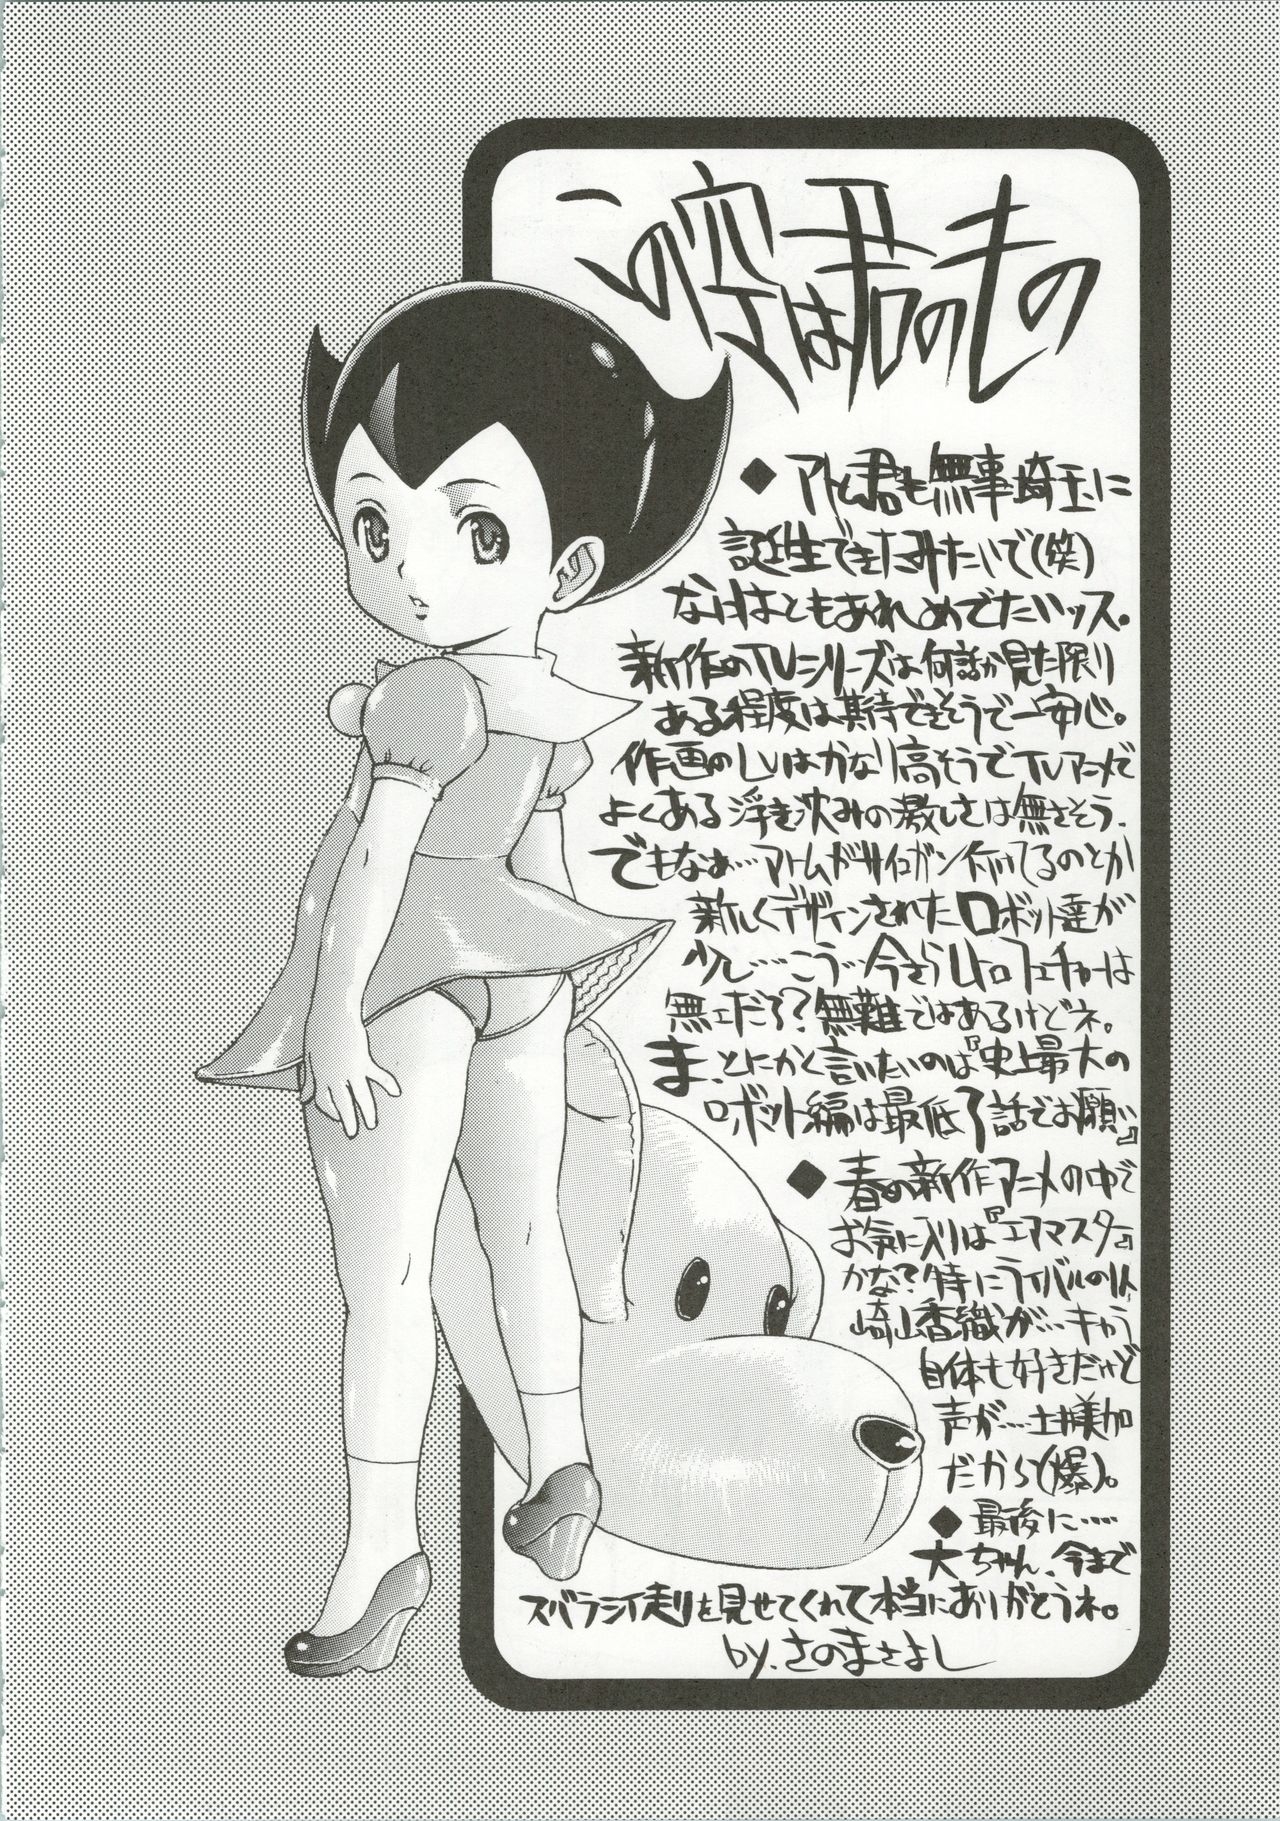 この空は君のもの
◆アトム君も無事埼玉に
誕生できたみたいで(笑)
なにはともあれめでたいッス。
新作のTVシリーズは何話か見た限り
ある程度は期待できそうで一安心。
作画のLvはかなり高そうでTVアニメで
よくある浮き沈みの激しさは無さそう、
でもなぁ…アトムがサイコガン付けてるのとか
新しくデザインされたロボット達が
少し…こう…今さらレトロフューチャーは
無ェだろ?無難ではあるけどネ。
ま、とにかく言いたいのは『史上最大の
ロボット編は最低7話でお願い』
◆春の新作アニメの中で
お気に入りは『エアマスター』
かな?特にライバルの
崎山香織が…キャラ
自体も好きだけど
声が…土様加
だから(爆)。
◆最後に……
大ちゃん、今まで
スバラシイ走りを見せてくれて本当にありがとうネ。
by.さのまさよし